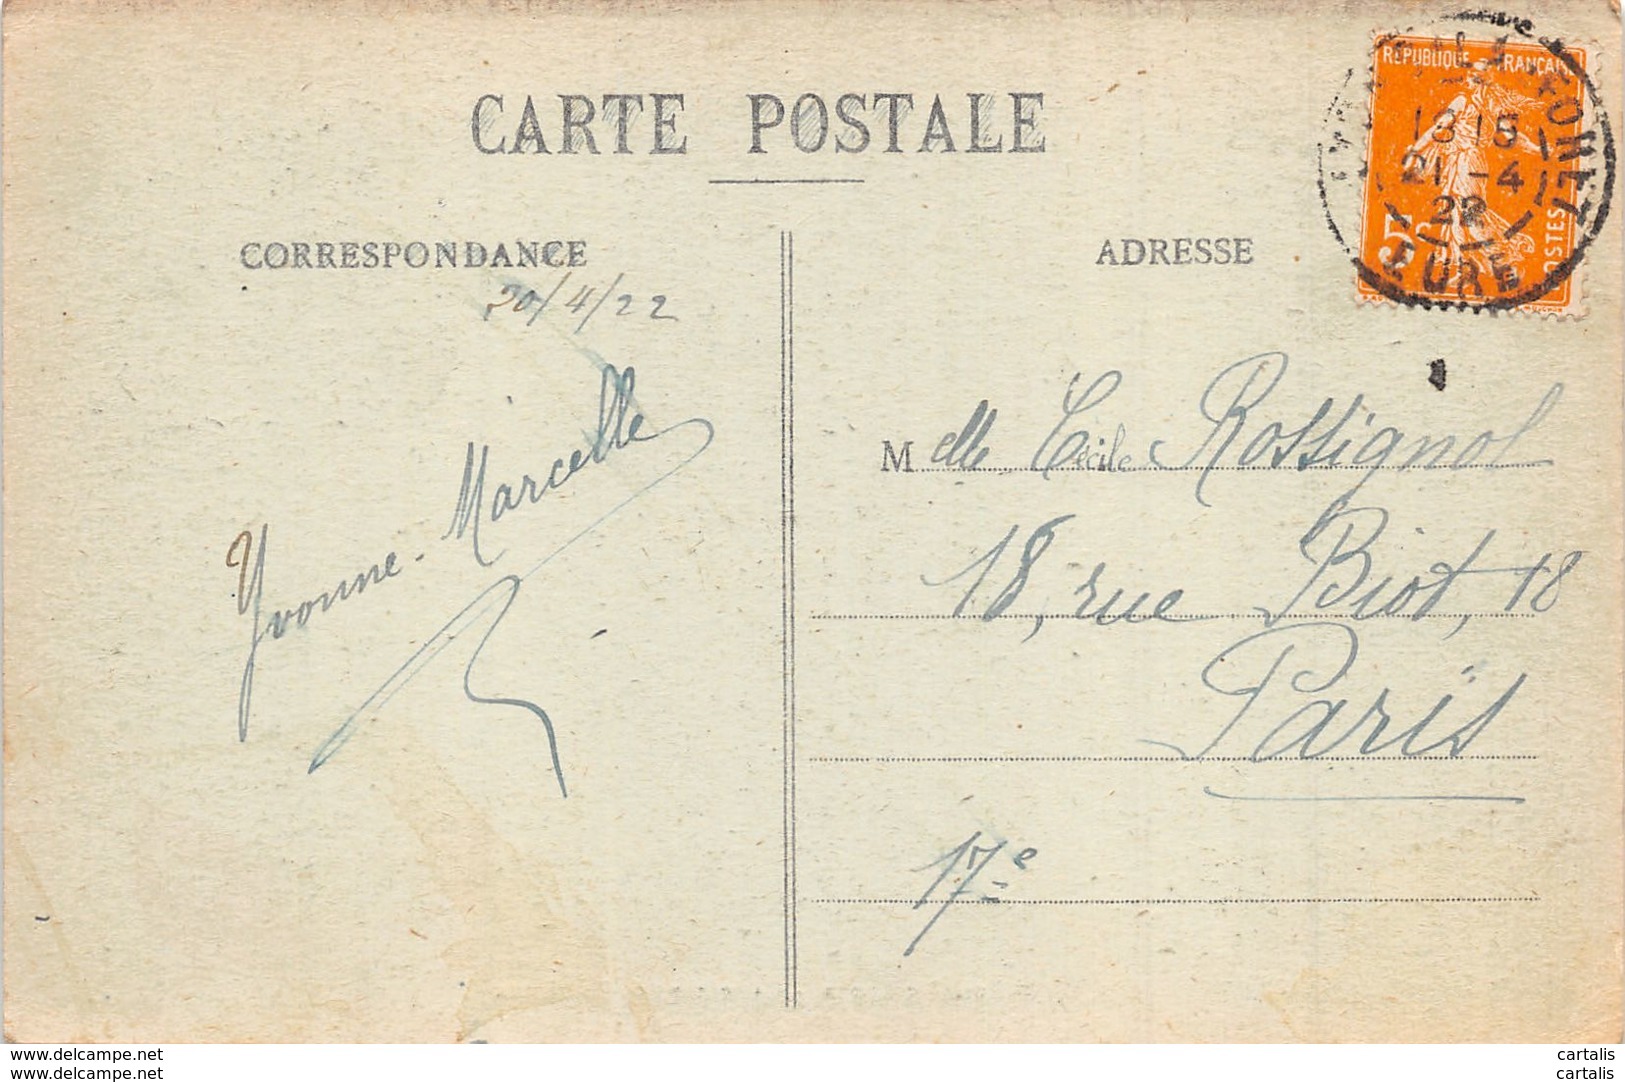 CARTE POSTALE
CORRESPONDANCE
ADRESSE
RÉPUBLIQUE FRANÇAISE
5c
POSTES
18 15
21 - 4
22
EURE
20/4/22
Yvonne - Marcelle
Melle Cécile Rossignol
18, rue Biot, 18
Paris
17e
www.delcampe.net
www.delcampe.net
cartalis
cartalis